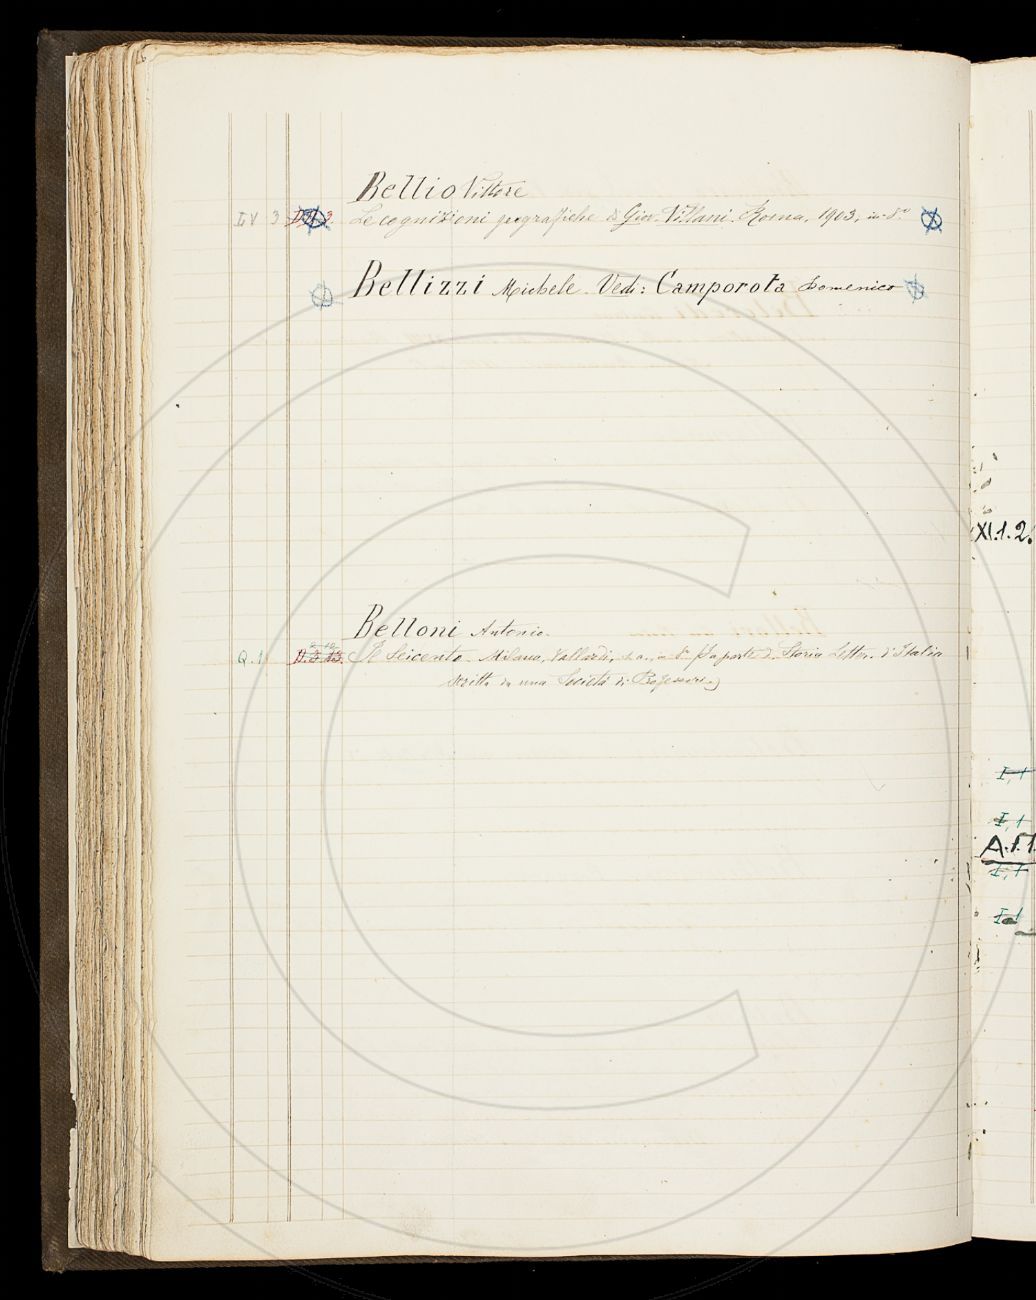 Bellio Vittore
IV 3 Le cognizioni geografiche di Giov. Villani. Roma, 1903, in-8°
Bellizzi Michele. Vedi: Camporota Domenico
XI.1.2.
Belloni Antonio.
Q.1 D.3.13. Il Seicento. Milano, Vallardi, s.a., in 8° (Fa parte d. Storia Letter. d'Italia
scritta da una Società di Professori.)
I,1
I,1
A.11.
I,1
I,1